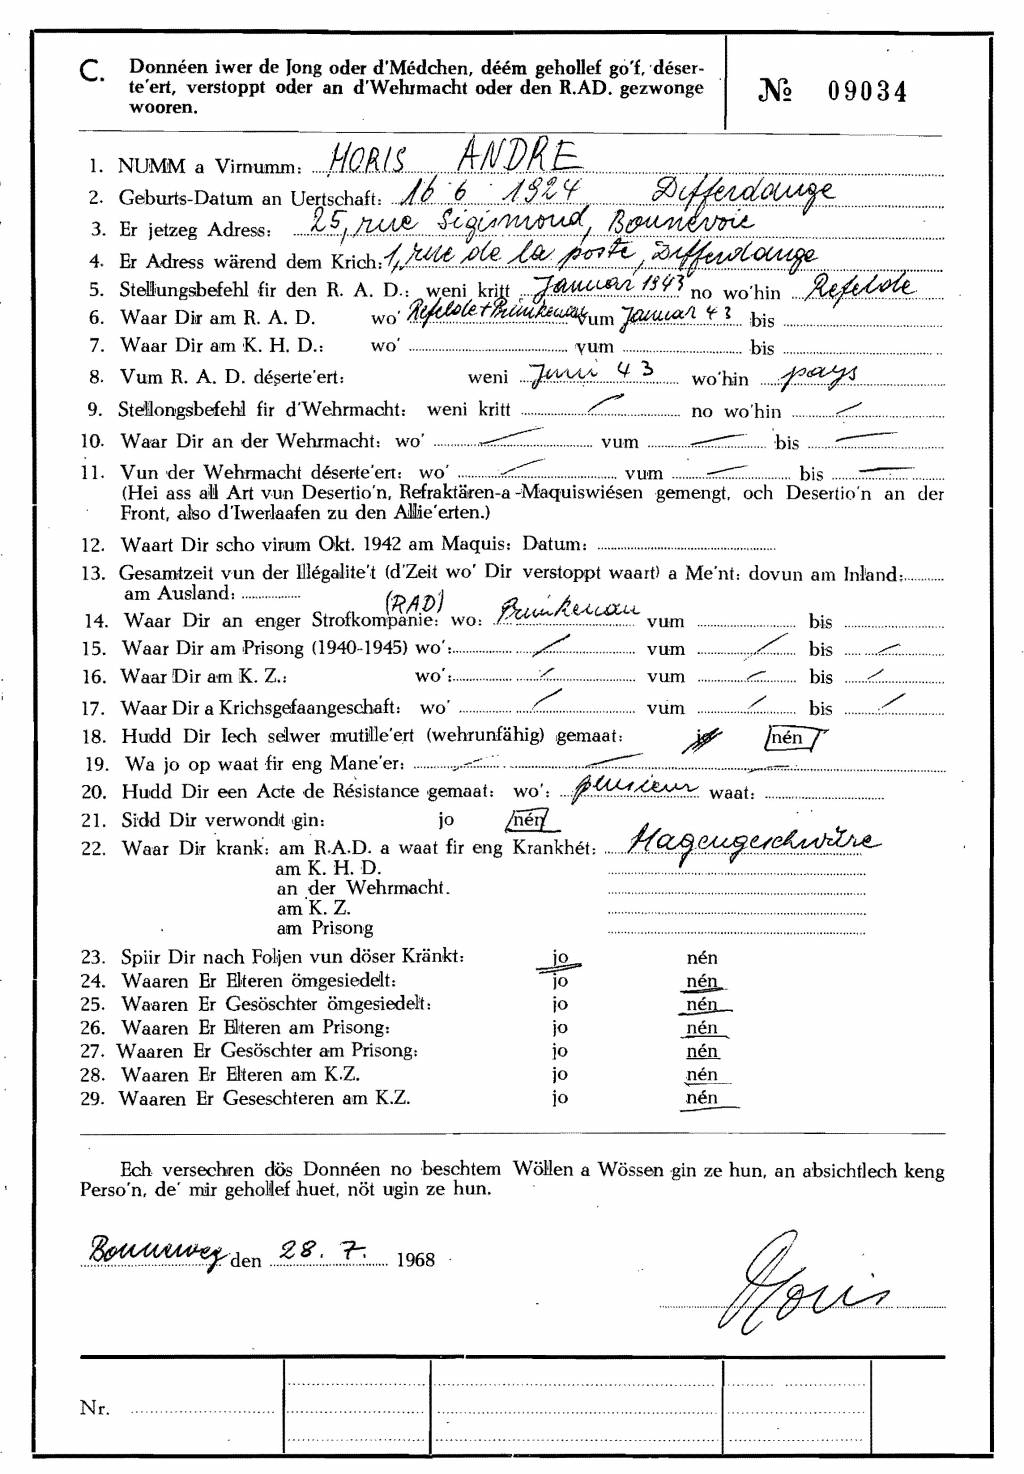 C. Donnéen iwer de Jong oder d'Médchen, déém gehollef go'f, déser-
te'ert, verstoppt oder an d'Wehrmacht oder den R.AD. gezwonge
wooren.
№ 09034
1. NUMM a Virnumm: HORIS ANDRE
2. Geburts-Datum an Uertschaft: 16 6 1924 Differdange
3. Er jetzeg Adress: 25, rue Sigismond, Bonnevoie
4. Er Adress wärend dem Krich: 1, rue de la poste, Differdange
5. Stellungsbefehl fir den R. A. D.: weni kritt Januar 1943 no wo'hin Refelde
6. Waar Dir am R. A. D. wo' Refelde + Prinkenau vum Januar 43 bis
7. Waar Dir am K. H. D.: wo' vum bis
8. Vum R. A. D. déserte'ert: weni Juni 43 wo'hin pays
9. Stellongsbefehl fir d'Wehrmacht: weni kritt no wo'hin
10. Waar Dir an der Wehrmacht: wo' vum bis
11. Vun der Wehrmacht déserte'ert: wo' vum bis
(Hei ass all Art vun Desertio'n, Refraktären-a-Maquiswiésen gemengt, och Desertio'n an der
Front, also d'Iwerlaafen zu den Allie'erten.)
12. Waart Dir scho virum Okt. 1942 am Maquis: Datum:
13. Gesamtzeit vun der Illégalite't (d'Zeit wo' Dir verstoppt waart) a Me'nt: dovun am Inland:
am Ausland:
(RAD)
14. Waar Dir an enger Strofkompanie: wo: Prinkenau vum bis
15. Waar Dir am Prisong (1940-1945) wo': vum bis
16. Waar Dir am K. Z.: wo': vum bis
17. Waar Dir a Krichsgefaangeschaft: wo' vum bis
18. Hudd Dir Iech selwer mutille'ert (wehrunfähig) gemaat: jo nén
19. Wa jo op waat fir eng Mane'er:
20. Hudd Dir een Acte de Résistance gemaat: wo': plusieur waat:
21. Sidd Dir verwondt gin: jo nén
22. Waar Dir krank: am R.A.D. a waat fir eng Krankhét: Magengeschwüre
am K. H. D.
an der Wehrmacht.
am K. Z.
am Prisong
23. Spiir Dir nach Foljen vun döser Kränkt: jo nén
24. Waaren Er Elteren ömgesiedelt: jo nén
25. Waaren Er Gesöschter ömgesiedelt: jo nén
26. Waaren Er Elteren am Prisong: jo nén
27. Waaren Er Gesöschter am Prisong: jo nén
28. Waaren Er Elteren am K.Z. jo nén
29. Waaren Er Geseschteren am K.Z. jo nén
Ech versechren dös Donnéen no beschtem Wöllen a Wössen gin ze hun, an absichtlech keng
Perso'n, de' mir gehollef huet, nöt ugin ze hun.
Bonneweg den 28. 7. 1968
Horis
Nr.